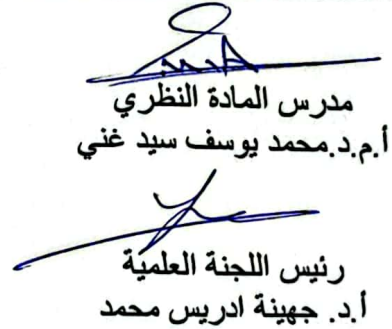 مدرس المادة النظري
أ.م.د.محمد يوسف سيد غني
رئيس اللجنة العلمية
أ.د. جهينة ادريس محمد